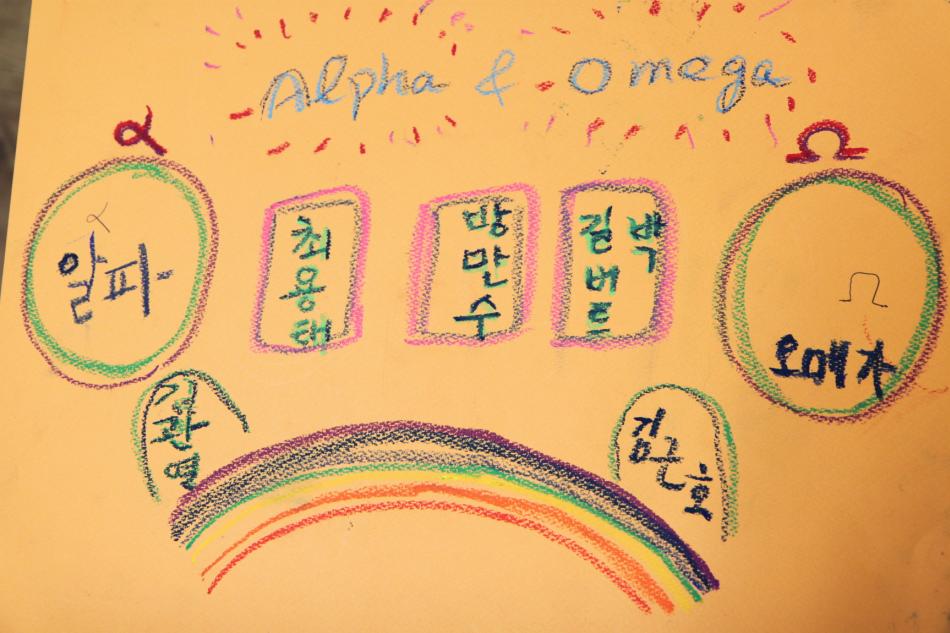 Alpha & Omega
α
Ω
α
알파
최용태
방만수
길버트
박
Ω
오메가
김근호